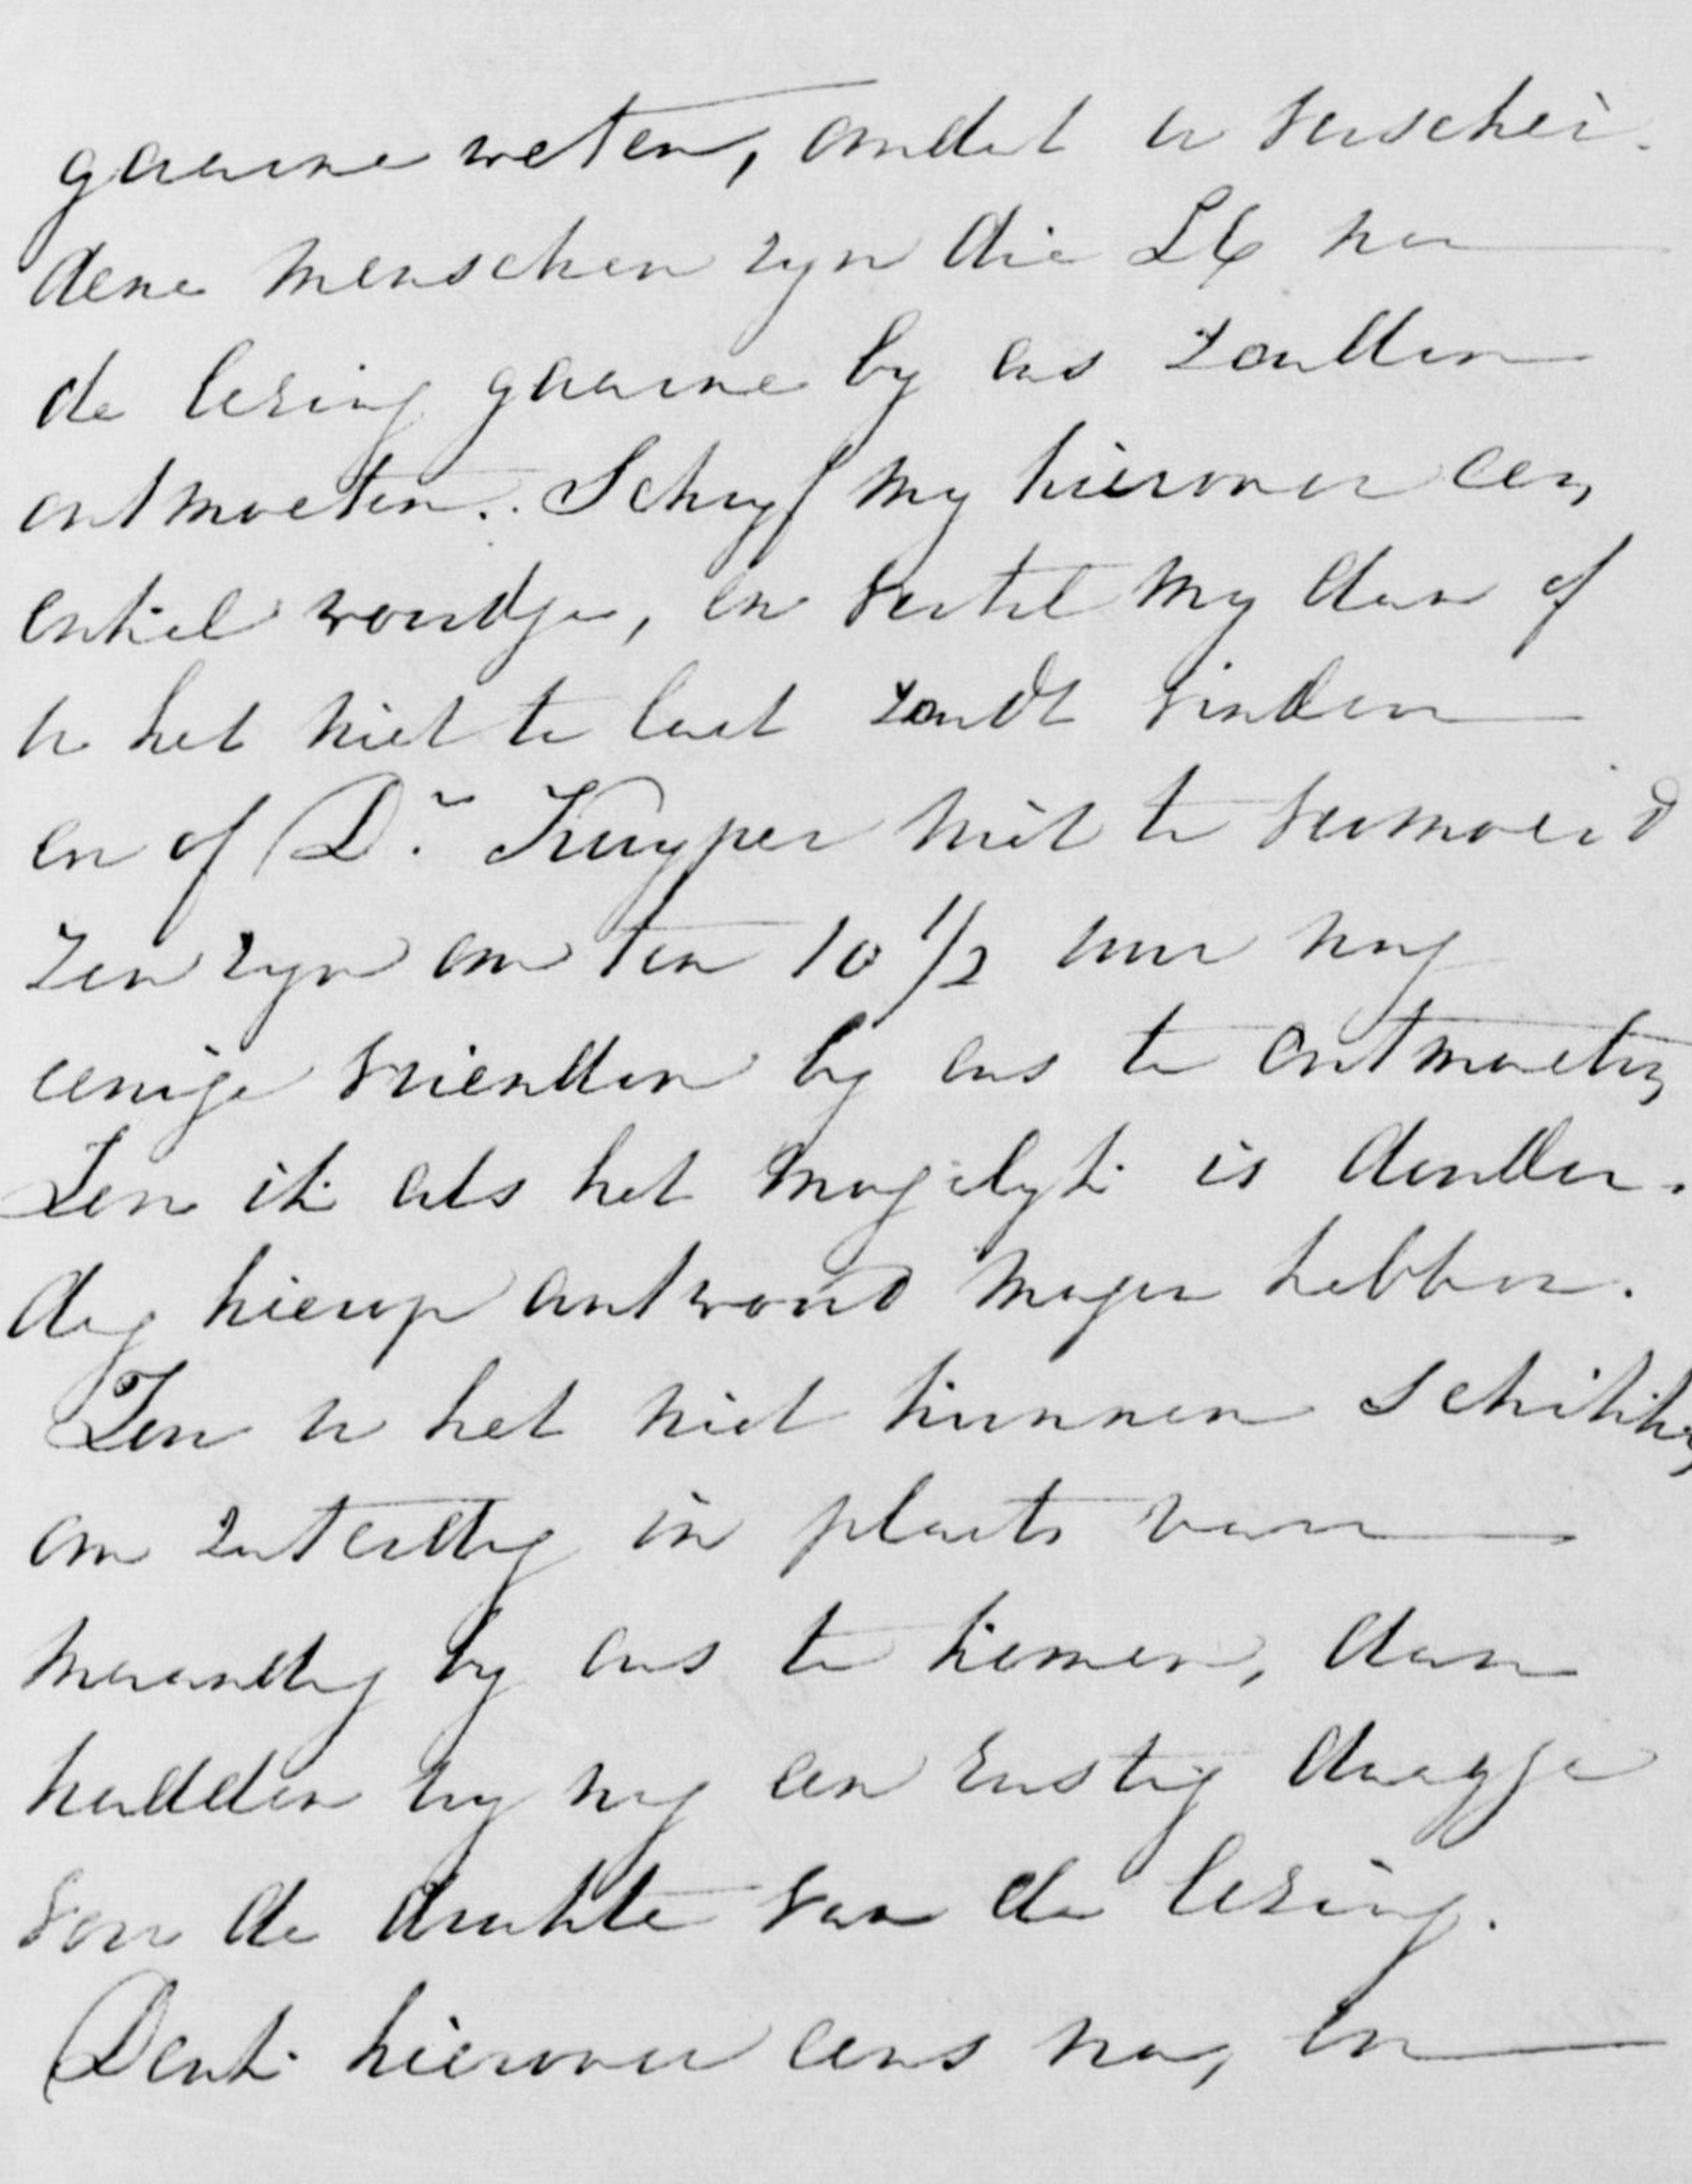 gaarne weten, omdat er verschei-
dene menschen zyn die UE na
de lezing gaarne by ons zouden
ontmoeten. Schryf my hierover een
enkel woordje, en vertel my dan of
U het niet te laat zoudt vinden
en of Dr. Kuyper niet te vermoeid
zou zyn om ten 10 1/2 uur nog
eenige vrienden by ons te ontmoeten
Zou ik als het mogelyk is donder-
dag hierop antwoord mogen hebben.
Zou U het niet kunnen schikken
om zaterdag in plaats van
maandag by ons te komen, dan
hadden wy nog een rustig dagje
voor de drukte van de lezing.
Denk hierover eens na, en